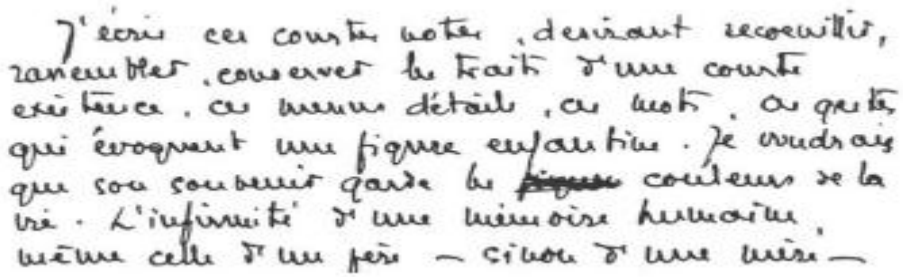 J'écris ces courtes notes, desirant recoeuillir,
rassembler, conserver les traits d'une courte
existence, ces menus détails, ces mots, ces gestes
qui évoquent une figure enfantine. Je voudrais
que son souvenir garde les couleurs de la
vie. L'infirmité d'une mémoire humaine,
même celle d'un père — sinon d'une mère —